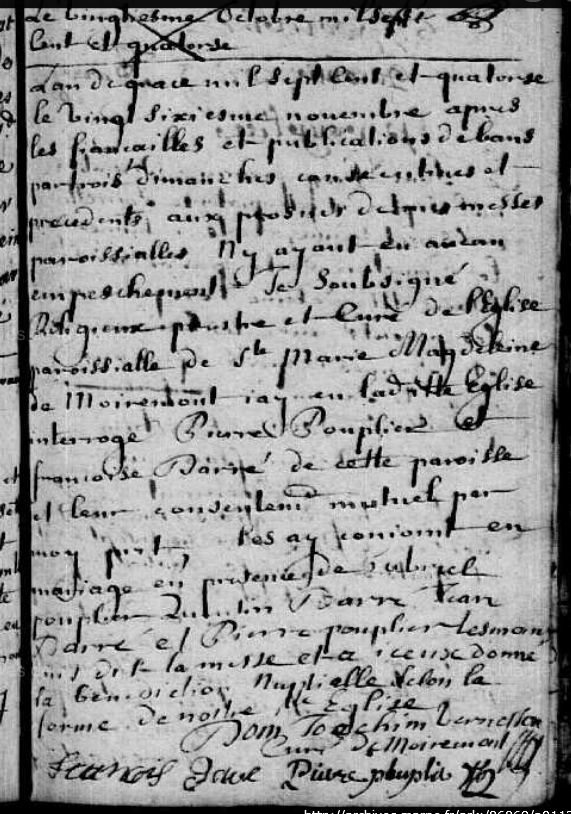 Le vingtiesme Octobre mil sept
Cent et quatorse
Lan de grace mil sept Cent et quatorse
le vingt sixiesme novembre apres
les fiancailles et publications de bans
par trois dimanches consecutives et
precedents aux prosnes de mes messes
paroissialles Ny ayant eu aucun
empeschement Je Soubsigné
Religieux prestre et Curé de l'Eglise
paroissialle de Ste Marie Magdeleine
de Moiremont iay en laditte Eglise
interrogé Pierre Pouplier et
francoise Barré de cette paroisse
et leur consentemt mutuel par
moy prit, les ay conioint en
mariage en presence de Gabriel
pouplier Quentin Barré Jean
Barré et Pierre pouplier Lesmoin
dit la messe et a iceux donné
la benediction Nuptielle selon la
forme de nostre Ste Eglise
Dom Joachim
Curé de Moiremont
Francois Pierre pouplie